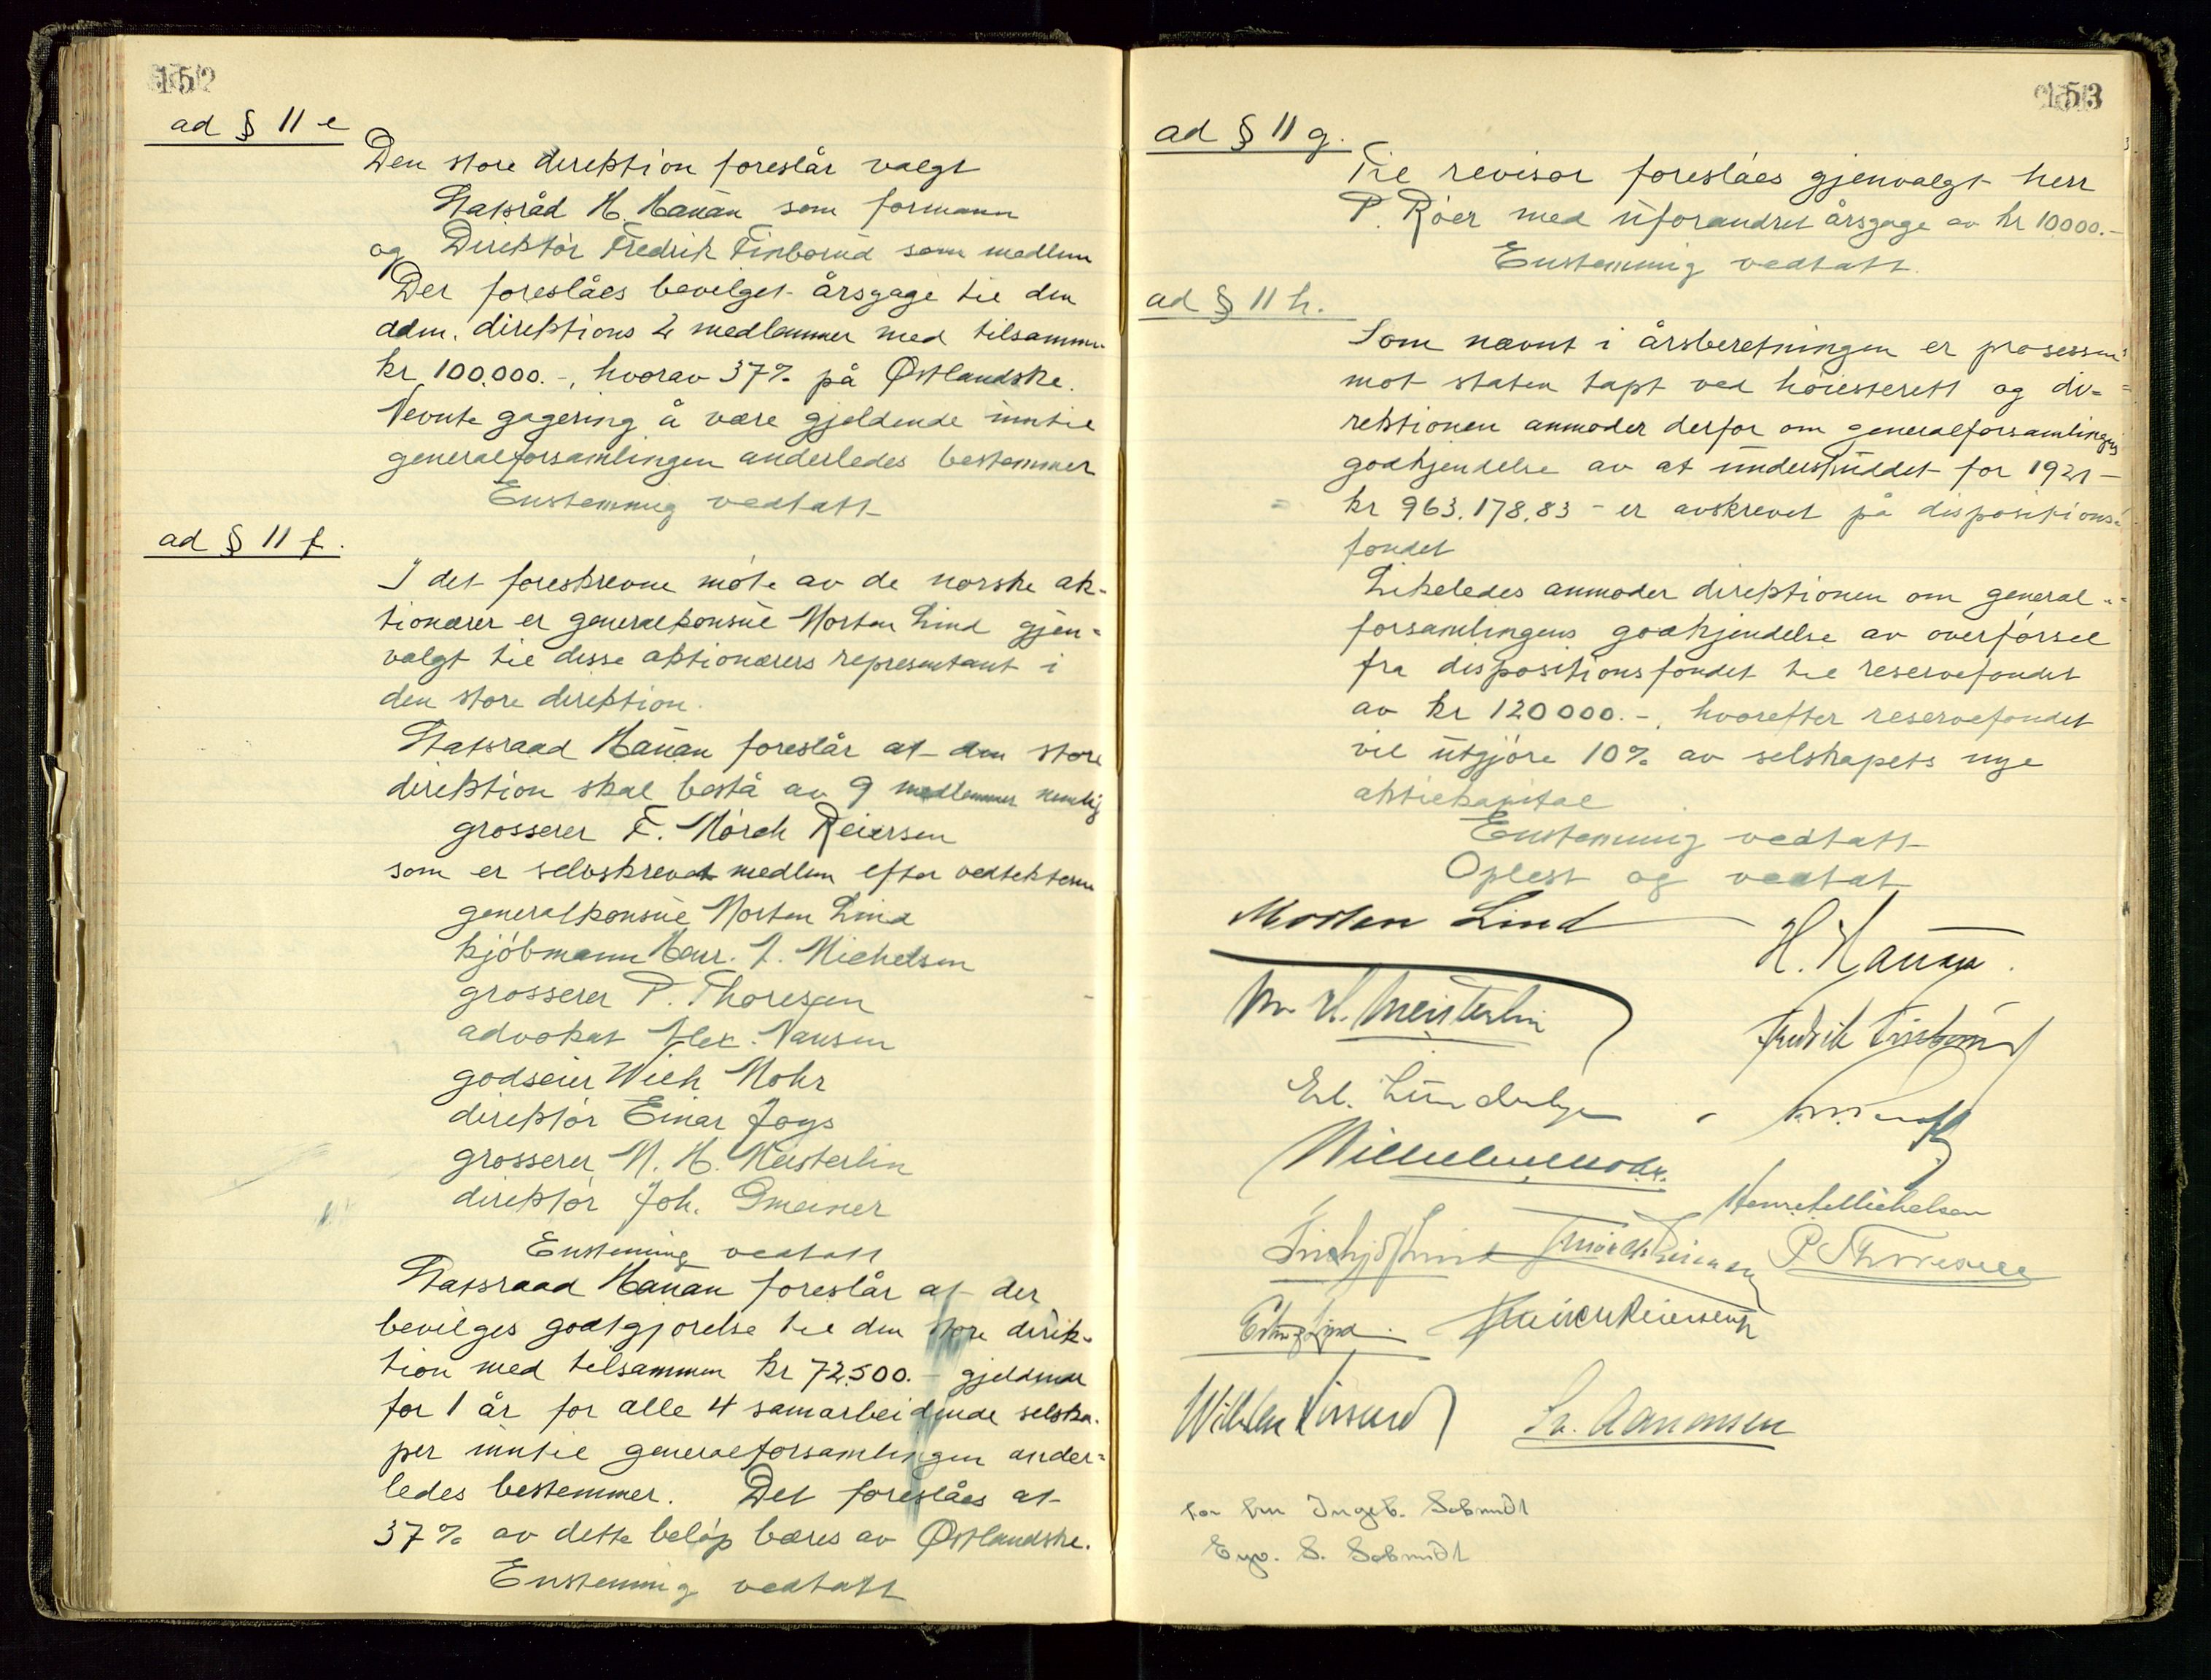 152
ad § 11 e
Den store direktion foreslår valgt
Statsråd H. Hauan som formann
og Direktör Fredrik Finborud som medlem
Der foreslåes bevilget årsgage til den
adm. direktions 2 medlemmer med tilsammen
kr 100.000.-, hvorav 37% på Østlandske.
Nevnte gagering å være gjeldende inntil
generalforsamlingen anderledes bestemmer
Enstemmig vedtatt
ad § 11 f.
I det foreskrevne möte av de norske ak-
tionærer er generalkonsul Morten Lind gjen-
valgt til disse aktionærers representant i
den store direktion.
Statsraad Hauan foreslår at den store
direktion skal bestå av 9 medlemmer nemlig
grosserer F. Mörch Reiersen
som er selvskrevet medlem efter vedtektene
generalkonsul Morten Lind
kjöbmann Henr. J. Michelsen
grosserer P. Thoresen
advokat Alex. Nansen
godseier Wilh Mohr
direktör Einar Joys
grosserer M. H. Meisterlin
direktör Joh. Gmeiner
Enstemmig vedtatt
Statsraad Hauan foreslår at der
bevilges godtgjörelse til den store direk-
tion med tilsammen kr 72.500.- gjeldende
for 1 år for alle 4 samarbeidende selska-
per inntil generalforsamlingen ander-
ledes bestemmer. Det foreslåes at
37% av dette belöp bæres av Østlandske.
Enstemmig vedtatt
153
ad § 11 g.
Til revisor foreslåes gjenvalgt herr
P. Röer med uforandret årsgage av kr 10.000.-
Enstemmig vedtatt.
ad § 11 h.
Som nævnt i årsberetningen er prosessen
mot staten tapt ved höiesterett og di-
rektionen anmoder derfor om generalforsamlingens
godkjendelse av at underskuddet for 1921 -
kr 963.178.83 - er avskrevet på dispositions-
fondet
Likeledes anmoder direktionen om general-
forsamlingens godkjendelse av overförsel
fra dispositionsfondet til reservefondet
av kr 120000.-, hvorefter reservefondet
vil utgjöre 10% av selskapets nye
aktiekapital
Enstemmig vedtatt
Oplest og vedtat
Morten Lind H. Hauan.
M. H. Meisterlin Fredrik Finborud
Wilhelm Mohr
Henr. J. Michelsen
Mörch Reiersen P Thoresen
Reiersen
Sv. Aanonsen
for fru Ingeb. Schmidt
Eyv. S. Schmidt